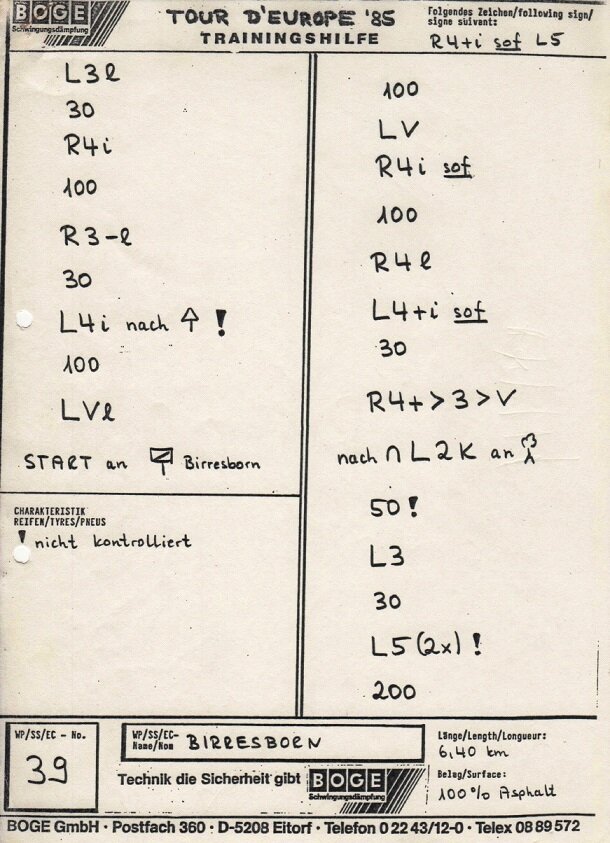 BOGE
Schwingungsdämpfung
TOUR D'EUROPE '85
TRAININGSHILFE
Folgendes Zeichen/following sign/
signe suivant:
R4+i sof L5
L3l
30
R4i
100
R3-l
30
L4i nach ↑ !
100
LVl
START an Birresborn
CHARAKTERISTIK
REIFEN/TYRES/PNEUS
! nicht kontrolliert
100
LV
R4i sof
100
R4l
L4+i sof
30
R4+>3>V
nach ∩ L2K an
50!
L3
30
L5(2x)!
200
WP/SS/EC - No.
39
WP/SS/EC-
Name/Nom BIRRESBORN
Technik die Sicherheit gibt BOGE
Schwingungsdämpfung
Länge/Length/Longueur:
6,40 km
Belag/Surface:
100% Asphalt
BOGE GmbH · Postfach 360 · D-5208 Eitorf · Telefon 0 22 43/12-0 · Telex 08 89 572